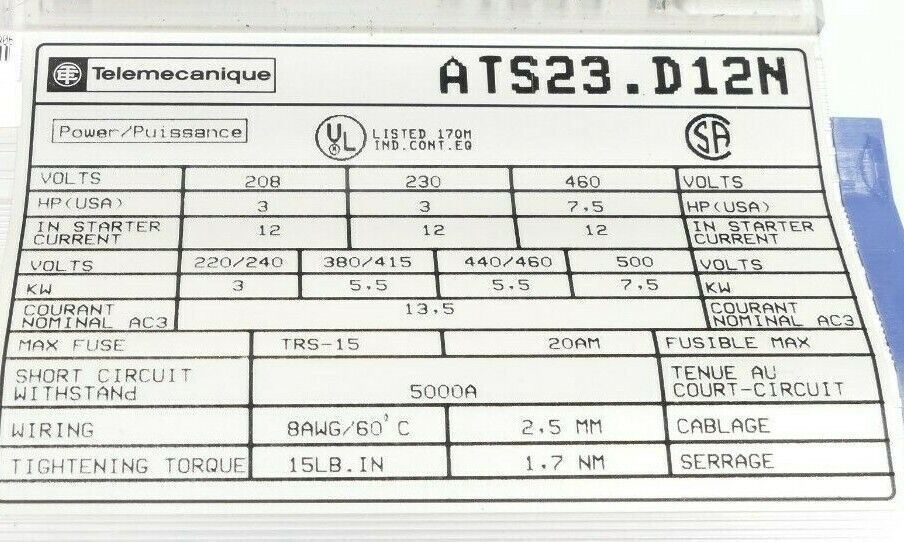 Telemecanique ATS23.D12N
Power/Puissance UL LISTED 170M
IND.CONT.EQ SA
VOLTS 208 230 460 VOLTS
HP(USA) 3 3 7,5 HP(USA)
IN STARTER
CURRENT 12 12 12 IN STARTER
CURRENT
VOLTS 220/240 380/415 440/460 500 VOLTS
KW 3 5,5 5,5 7,5 KW
COURANT
NOMINAL AC3 13,5 COURANT
NOMINAL AC3
MAX FUSE TRS-15 20AM FUSIBLE MAX
SHORT CIRCUIT
WITHSTANd 5000A TENUE AU
COURT-CIRCUIT
WIRING 8AWG/60'C 2,5 MM CABLAGE
TIGHTENING TORQUE 15LB.IN 1,7 NM SERRAGE